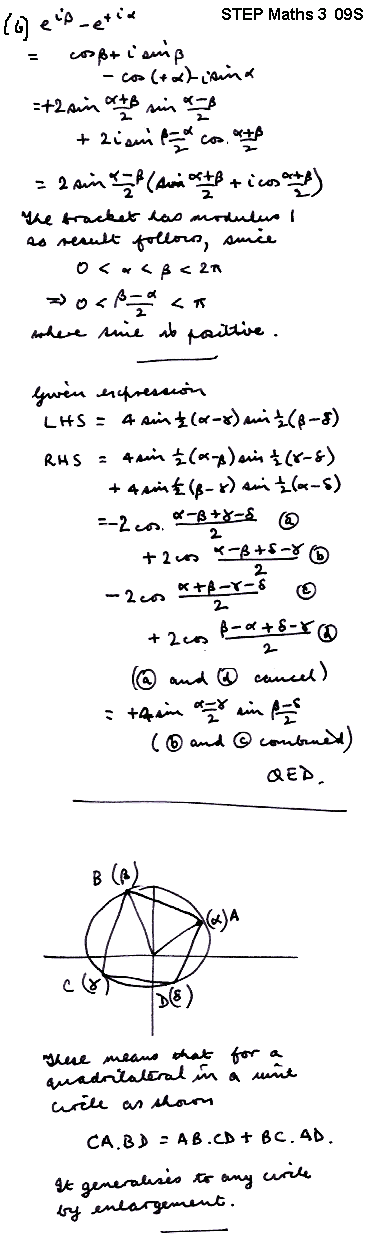 STEP Maths 3 09S
(6) e^{iβ} - e^{+iα}
= cosβ + i sinβ
- cos(+α) - i sinα
= +2 sin (α+β)/2 sin (α-β)/2
+ 2i sin (β-α)/2 cos. (α+β)/2
= 2 sin (α-β)/2 (sin (α+β)/2 + i cos (α+β)/2)
The bracket has modulus 1
so result follows, since
0 < α < β < 2π
⇒ 0 < (β-α)/2 < π
where sine is positive.
Given expression
LHS = 4 sin ½(α-γ) sin ½(β-δ)
RHS = 4 sin ½(α-β) sin ½(γ-δ)
+ 4 sin ½(β-γ) sin ½(α-δ)
= -2 cos. (α-β+γ-δ)/2 ⓐ
+ 2 cos (α-β+δ-γ)/2 ⓑ
- 2 cos (α+β-γ-δ)/2 ⓒ
+ 2 cos (β-α+δ-γ)/2 ⓓ
(ⓐ and ⓓ cancel)
= +4 sin (α-γ)/2 sin (β-δ)/2
(ⓑ and ⓒ combined)
QED.
B (β)
(α) A
C (γ)
D(δ)
These means that for a
quadrilateral in a unit
circle as shown
CA.BD = AB.CD + BC.AD.
It generalises to any circle
by enlargement.